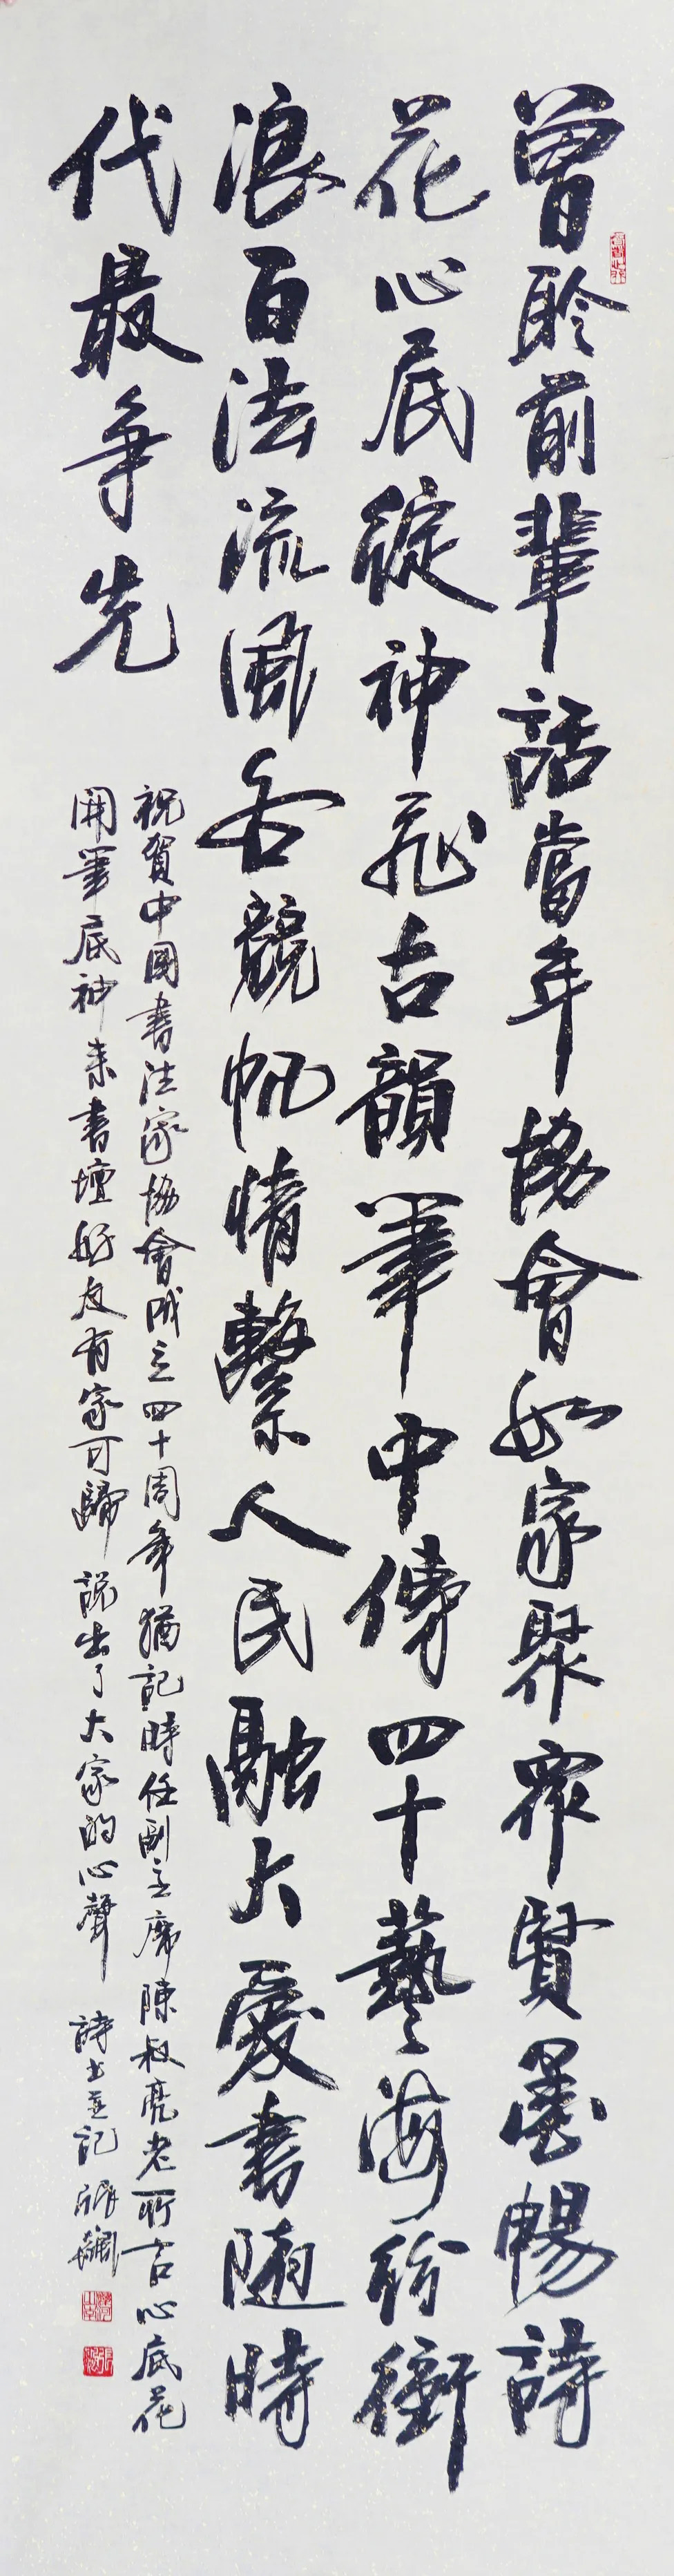 曾聆前輩話當年協會如家聚眾賢墨暢詩
花心底綻神飛古韻筆中傳四十藝海紛銜
浪百法流風各競帆情繫人民融大愛書隨時
代最爭先
祝賀中國書法家協會成立四十周年猶記時任副主席陳叔亮老所言心底花
開筆底神來書壇好友有家可歸說出了大家的心聲 詩書並記